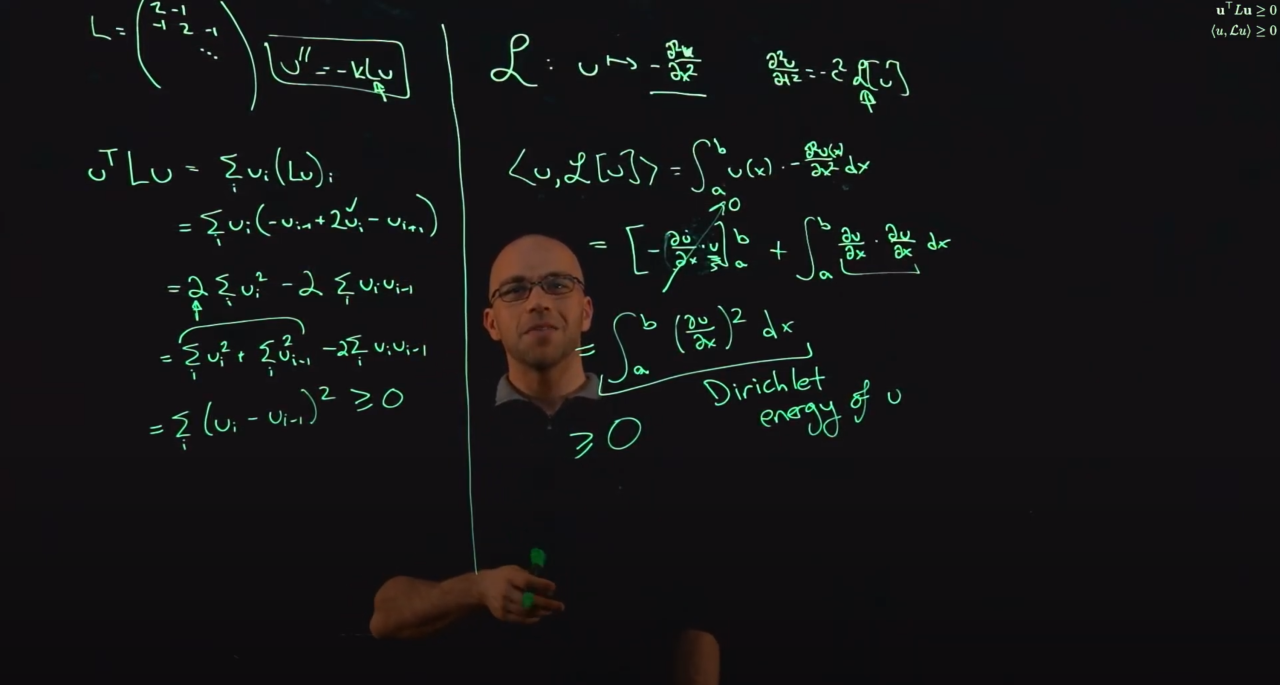 L = ( 2 -1
-1 2 -1
⋱ )
u'' = -kLu
uᵀLu = Σᵢ uᵢ(Lu)ᵢ
= Σᵢ uᵢ(-uᵢ₋₁ + 2uᵢ - uᵢ₊₁)
= 2 Σᵢ uᵢ² - 2 Σᵢ uᵢuᵢ₋₁
= Σᵢ uᵢ² + Σᵢ uᵢ₋₁² - 2Σᵢ uᵢuᵢ₋₁
= Σᵢ (uᵢ - uᵢ₋₁)² ≥ 0
ℒ : u ↦ -∂²u/∂x²
∂²u/∂t² = -c² ℒ[u]
⟨u, ℒ[u]⟩ = ∫ₐᵇ u(x) · -∂²u(x)/∂x² dx
= [-∂u/∂x · u]ₐᵇ + ∫ₐᵇ ∂u/∂x · ∂u/∂x dx
0
= ∫ₐᵇ (∂u/∂x)² dx
Dirichlet
energy of u
≥ 0
uᵀLu ≥ 0
⟨u, ℒu⟩ ≥ 0